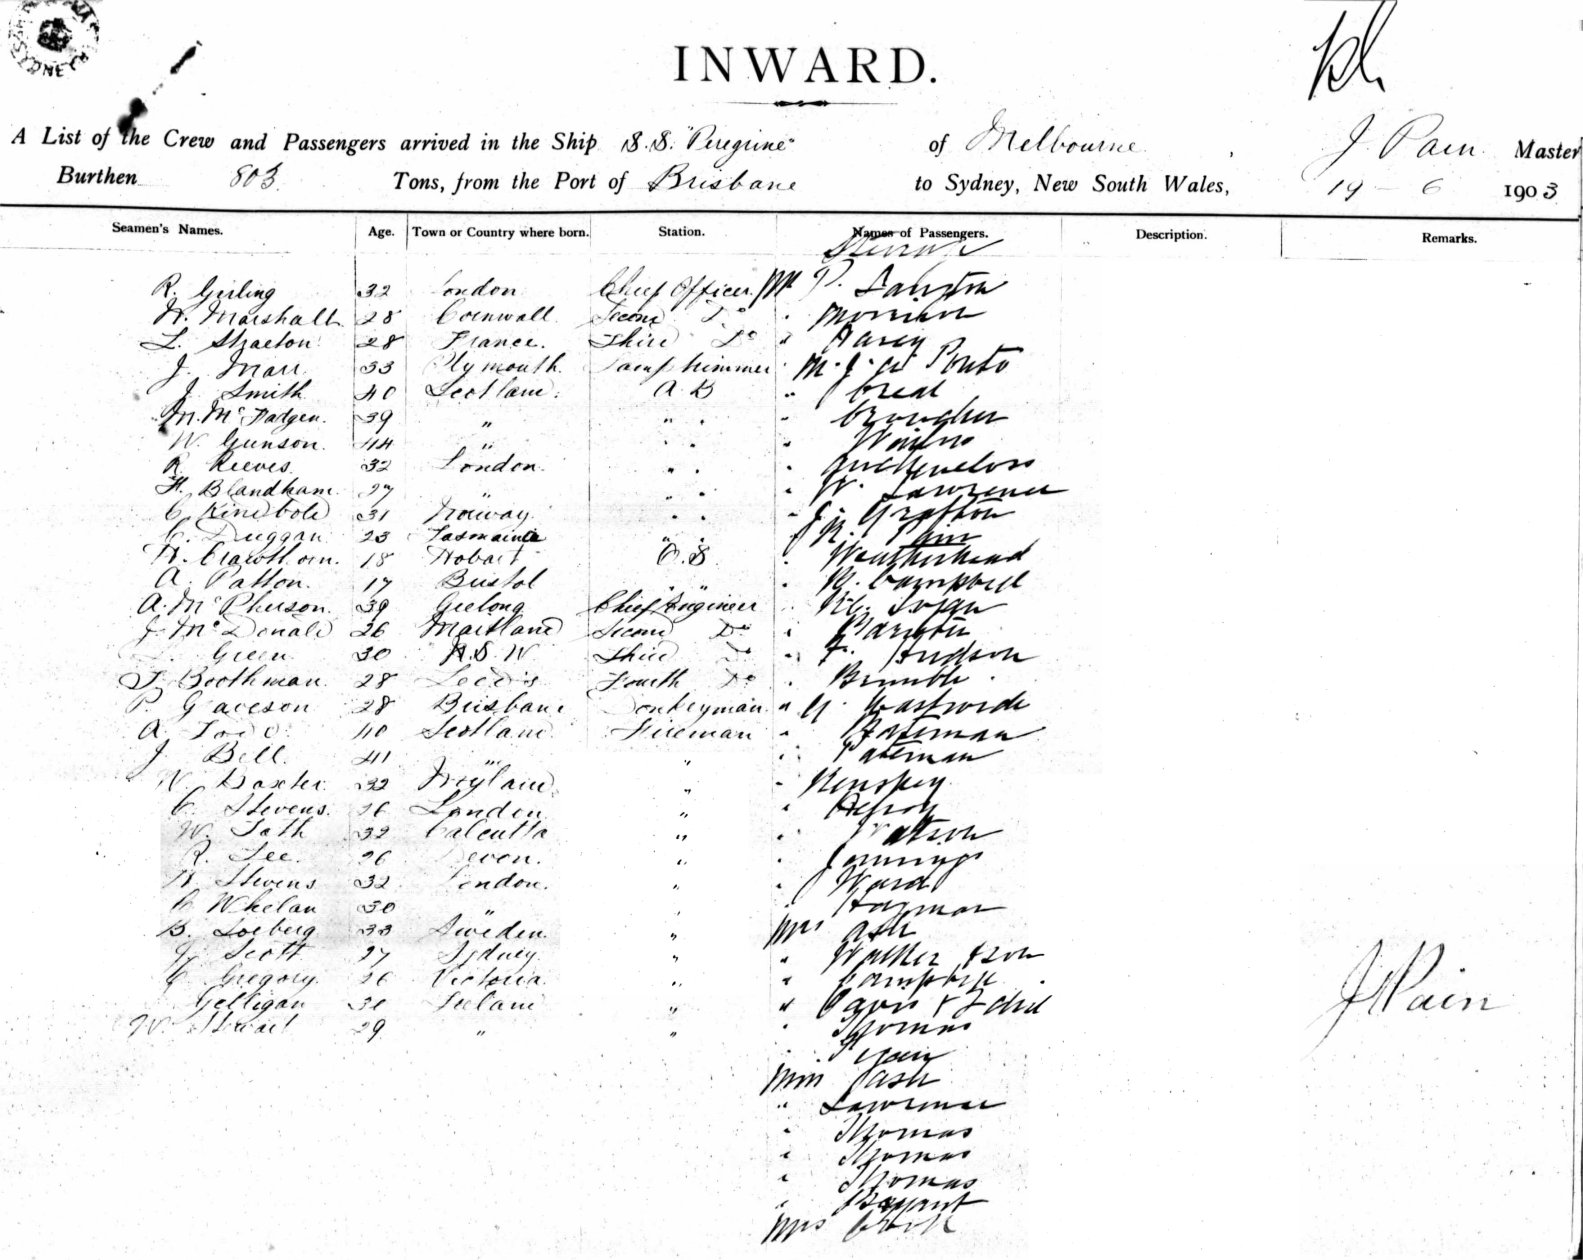 INWARD.
A List of the Crew and Passengers arrived in the Ship S.S. "Peregrine" of Melbourne, J Pain Master
Burthen 803 Tons, from the Port of Brisbane to Sydney, New South Wales, 19 - 6 1903
Seamen's Names. Age. Town or Country where born. Station. Names of Passengers. Description. Remarks.
R. Girling 32 London Chief Officer Mr P.
W. Marshall 28 Cornwall Second Do " Morrison
L. Straeton 28 France. Third Do " Harey
J. Marr 33 Plymouth Lamptrimmer
J. Smith 40 Scotland. A B "
M. McFadgen. 39 " " " "
W. Gunson. 44 " " " "
R. Reeves. 32 London. " " "
H. Blandham. 27 " " " " W. Lawrence
C. Kinebole 31 Norway " " " J. Grafton
C. Duggan 23 Tasmania " " " Pain
W. Crawthorn. 18 Hobart O.S. " Weatherhead
A. Patton. 17 Bristol " " " R. Campbell
A. McPherson. 39 Geelong Chief Engineer "
J. McDonald 26 Maitland Second Do "
Green 30 N.S.W. Third Do " F. Hudson
T. Boothman. 28 Leeds Fourth Do " Brumble
P. Graceson 28 Brisbane Donkeyman "
A. Todd. 40 Scotland Fireman " Bateman
J. Bell. 41 " " " Bateman
W. Baxter. 32 England " "
C. Stevens. 26 London " "
W. Tath 32 Calcutta " " Watson
R. Lee. 26 Devon. " " Jennings
H. Stevens 32 London. " " Ward
C. Whelan 30 " " " Hayman
B. Soeberg 33 Sweden. " Mrs Ash
J. Scott 27 Sydney. " " Walker & son
C. Gregory. 26 Victoria. " " Campbell
Gelligan 30 Ireland " " Davis & 2 child
W. Stuart 29 " " " Thomas
J Pain
Miss Cash
" Lawrence
" Thomas
" Thomas
" Thomas
" Bryant
Mrs